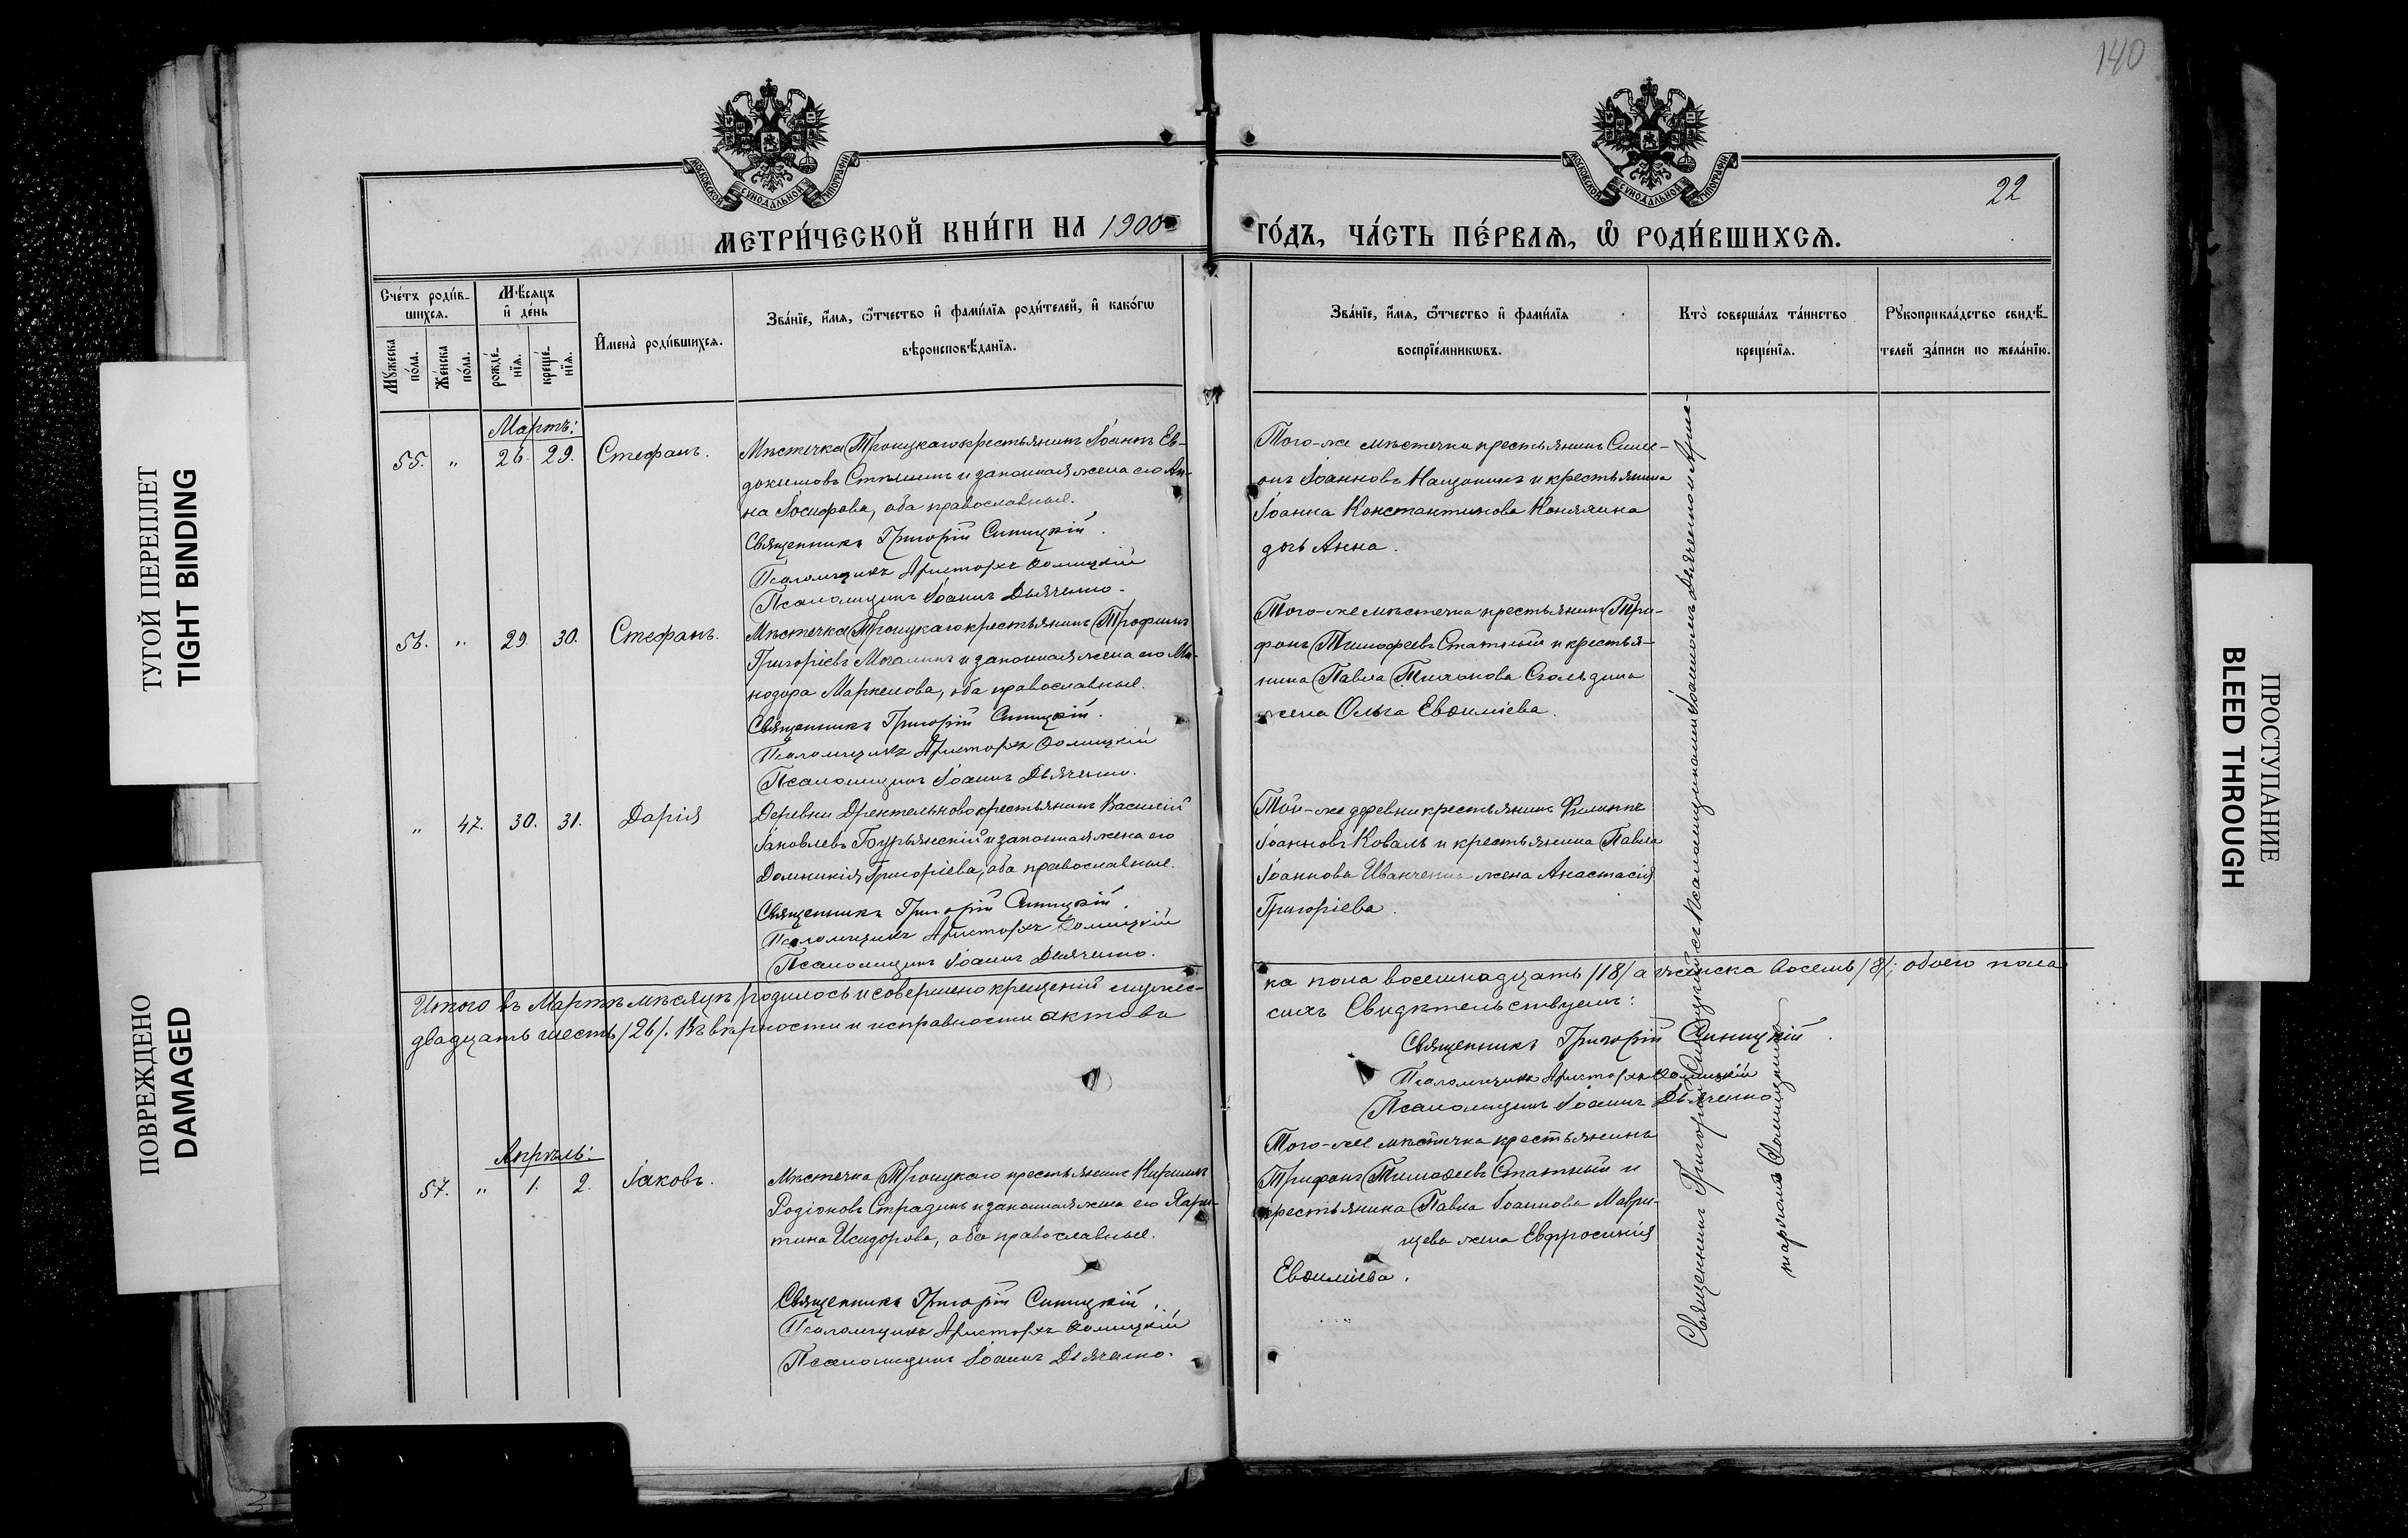 140
22
МОСКОВСКОЙ СѴНОДАЛЬНОЙ ТИПОГРАФІИ
МОСКОВСКОЙ СѴНОДАЛЬНОЙ ТИПОГРАФІИ
МЕТРИ́ЧЕСКОЙ КНИ́ГИ НА 1900
ГО́ДЪ, ЧА́СТЬ ПЕ́РВАѦ, Ѡ҆ РОДИ́ВШИХСѦ.
Сче́тъ роди́в-
шихсѧ.
Мꙋ́жеска
по́ла.
Же́нска
по́ла.
Мѣ́сѧцъ
и҆ де́нь
рожде́-
нїѧ.
креще́-
нїѧ.
И҆мена̀ роди́вшихсѧ.
Зва́нїе, и҆́мѧ, ѻ҆́тчество и҆ фами́лїѧ роди́телей, и҆ како́гѡ
вѣроисповѣ́данїѧ.
Зва́нїе, и҆́мѧ, ѻ҆́тчество и҆ фами́лїѧ
воспрїе́мникѡвъ.
Кто̀ соверша́лъ та́инство
креще́нїѧ.
Рꙋкоприкла́дство свидѣ́-
телей за́писи по жела́нїю.
Мартъ:
55. " 26. 29. Стефанъ.
Мѣстечка Троицкаго крестьянинъ Іоаннъ Ев-
докимовъ и законная жена его Ан-
на Іосифова, оба православные.
Священникъ Григорій Синицкій.
Псаломщикъ Аристархъ Ѳомицкій
Псаломщикъ Іоаннъ Дьяченко.
Того-же мѣстечка крестьянинъ Симе-
онъ Іоанновъ и крестьянина
Іоанна Константинова
дочь Анна.
56. " 29 30. Стефанъ.
Мѣстечка Троицкаго крестьянинъ Трофимъ
Григоріевъ и законная жена его Ми-
нодора Маркелова, оба православные.
Священникъ Григорій Синицкій.
Псаломщикъ Аристархъ Ѳомицкій
Псаломщикъ Іоаннъ Дьяченко.
Того-же мѣстечка крестьянинъ Три-
фонъ Тимофеевъ Статный и крестья-
нина Павла
жена Ольга Евѳиміева.
" 47. 30. 31. Дарія
Деревни Дректельново крестьянинъ Василій
Іаковлевъ Бурьянскій и законная жена его
Домникія Григоріева, оба православные.
Священникъ Григорій Синицкій.
Псаломщикъ Аристархъ Ѳомицкій
Псаломщикъ Іоаннъ Дьяченко.
Той-же деревни крестьянинъ Филиппъ
Іоанновъ Коваль и крестьянина Павла
Іоаннова Иванченка жена Анастасія
Григоріева.
Итого въ Мартѣ мѣсяцѣ родилось и совершено крещеній мужес-
ка пола восемнадцать /18/ а женска восемь /8/; обоего пола
двадцать шесть /26/. Въ вѣрности и исправности актовъ
сихъ Свидѣтельствуемъ:
Священникъ Григорій Синицкій.
Псаломщикъ Аристархъ Ѳомицкій
Псаломщикъ Іоаннъ Дьяченко
Апрѣль:
57. " 1. 2. Іаковъ.
Мѣстечка Троицкаго крестьянинъ Кириллъ
Родіоновъ Страдинъ и законная жена его Хари-
тина Исидорова, оба православные.
Священникъ Григорій Синицкій.
Псаломщикъ Аристархъ Ѳомицкій
Псаломщикъ Іоаннъ Дьяченко.
Того-же мѣстечка крестьянинъ
Трифонъ Тимоѳеевъ Статный и
крестьянина Павла Іоаннова Маври-
щева жена Евфросинія
Евѳиміева.
Священникъ Григорій Синицкій съ Псаломщиками Іоанномъ Дьяченкомъ и Арис-
тархомъ Ѳомицкимъ
ТУГОЙ ПЕРЕПЛЕТ
TIGHT BINDING
ПОВРЕЖДЕНО
DAMAGED
ПРОСТУПАНИЕ
BLEED THROUGH